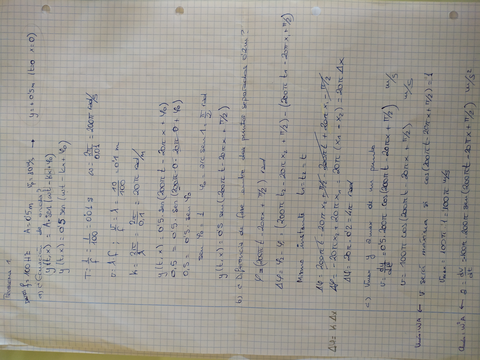 Problema 1
f=100 Hz A=0.5m v=10m/s → y=0.5m (t=0 x=0)
a) Ecuación de onda
y(t,x) = A·sen(ωt - kx + φ₀)
y(t,x) = 0.5 sen(ωt - kx + φ₀)
T = 1/f = 1/100 = 0.01 s ω = 2π/0.01 = 200π rad/s
v = λ·f ; v/f = λ = 10/100 = 0.1 m
k = 2π/λ = 2π/0.1 = 20π rad/m
y(t,x) = 0.5 sen(200π t - 20π x + φ₀)
0.5 = 0.5 sen(200π·0 - 20π·0 + φ₀)
0.5 = 0.5 sen φ₀
sen φ₀ = 1 φ₀ = arc sen 1 = π/2 rad
y(t,x) = 0.5 sen(200π t - 20π x + π/2)
b) Diferencia de fase entre dos puntos separados 0.2m =
φ = (200π t - 20π x + π/2) rad
Δφ = φ₂ - φ₁ = (200π t₂ - 20π x₂ + π/2) - (200π t₁ - 20π x₁ + π/2)
Mismo instante t₁ = t₂ = t
Δφ = 200π t - 20π x₂ + π/2 - 200π t + 20π x₁ - π/2
Δφ = -20π x₂ + 20π x₁ = 20π (x₁ - x₂) = 20π Δx
Δφ = K·Δx Δφ = 20π·0.2 = 4π rad
c) Vmax y amax de un punto
v = dy/dt = 0.5·200π cos(200π t - 20π x + π/2) m/s
v = 100π cos(200π t - 20π x + π/2) m/s
v será máxima si cos(200π t - 20π x + π/2) = 1
Vmax = 100π·1 = 100π m/s